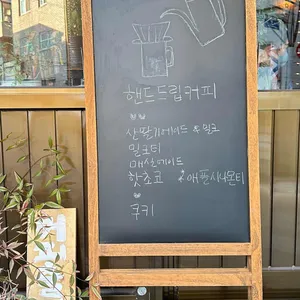 핸드드립커피
산딸기에이드 & 밀크
밀크티
매실에이드
핫초코 & 애플시나몬티
쿠키